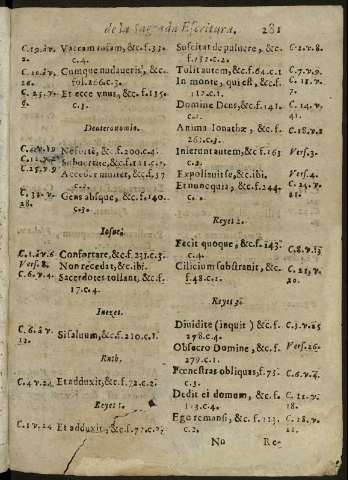 de la Sagrada Escritura. 281
C. 19. áv. Vaccam rufam, &c. f. 33.
2. c. 4.
C. 20. áv. Cumque nudaueris, &c.
26. fol. 266. c. 3.
C. 25. v. Et ecce vnus, &c. f. 135.
6. c. 3.
Deuteronomio.
&c. f. 200. c. 4.
C. 25. v. 9 Accedet mulier, &c. f. 37
c. 2.
C. 32. v. Gens absque, &c. f. 140.
28. c. 3.
Iosue.
C. 1. áv. 6 Confortare, &c. f. 231. c. 3.
Vers. 8. Non recedat, &c. ibi.
C. 6. v. 4. Sacerdotes tollant, &c. f.
17. c. 4.
Iuezes.
C. 6. áv. Si saluum, &c. f. 210. c. 1.
Ruth.
C. 4. v. 24 Et adduxit, &c. f. 72. c. 2.
Reyes 1.
C. 1. v. 24 Et adduxit, &c. f. 72. c. 2.
Suscitat de puluere, &c. C. 2. v. 8.
f. 132. c. 2.
Tulit autem, &c. f. 64. c. 1 C. 7. v. 9.
In monte, qui est, &c. f. C. 17. v.
17. c. 1. 1.
Domine Deus, &c. f. 141. C. 14. v.
c. 4.
Anima Ionathæ, &c. f. C. 18. v. 1
262. c. 3.
Inierunt autem, &c. f. 163 Vers. 3.
c. 2.
Expoliauit se, &c. ibi. Vers. 4.
Et nunc quia, &c. f. 244. C. 24. v.
c. 2. 21.
Reyes 2.
Fecit quoque, &c. f. 243. C. 8. v. 13
c. 4.
Cilicium substrauit, &c. C. 21. v.
f. 48. c. 1. 10.
Reyes 3.
Diuidite (inquit) &c. f. C. 3. v. 25
278. c. 4.
Obsecro Domine, &c. f. Vers. 26.
279. c. 1.
Fœnestras obliquas, f. 73. C. 6. v. 4.
c. 3.
Dedit ei domum, &c. f. C. 11. v.
113. c. 4. 18.
Ego remansi, &c. f. 113. C. 18. v.
c. 2. 22.
Nn Re-